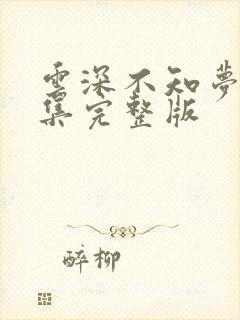 雲深不知夢
集完整版
醉柳